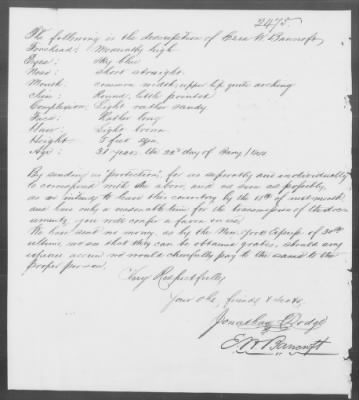 2475.
The following is the description of Ezra W. Bancroft,
Forehead: Moderately high.
Eyes: Sky blue
Nose: short straight.
Mouth: common width, upper lip quite
Chin: Round, little pointed.
Complexion: Light rather sandy
Face: Rather long
Hair: Light brown
Height: 5 feet
Age: 31 years the 22d day of
By sending us "protections," for us separately and individually
to correspond with the above, and as soon as possible,
as we intend to leave this country by the 15th of inst. month
and have only a reasonable time for the transmission of the doc-
uments, you will confer a favor on us.
We have sent no money, as by the New York Express of 30th
ultimo, we see that they can be obtained gratis, should any
expenses accrue we would cheerfully pay to the same to the
proper person.
Very Respectfully
Your Obt. friends & Servts.
Jonathan Dodge
E W Bancroft